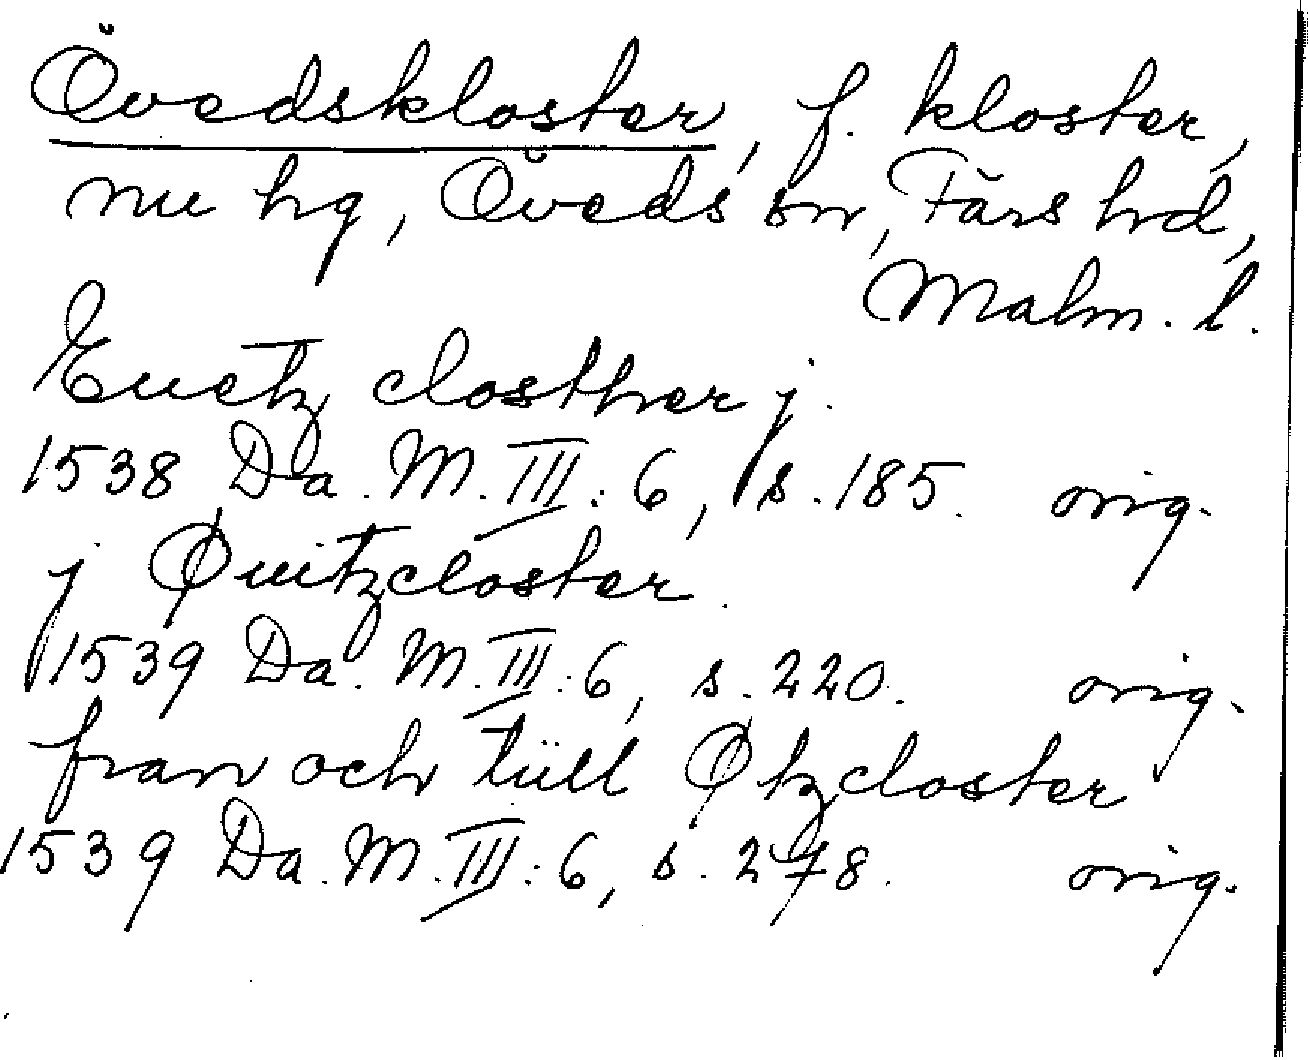 Övedskloster, f. kloster,
nu hg, Öveds sn, Färs hd,
Malm. l.
Euetz closther j
1538 Da. M. III: 6, s. 185. orig.
j Øuitzcloster
1539 Da. M. III: 6, s. 220. orig.
fran och tüll Øtzcloster
1539 Da. M. III: 6, s. 278. orig.